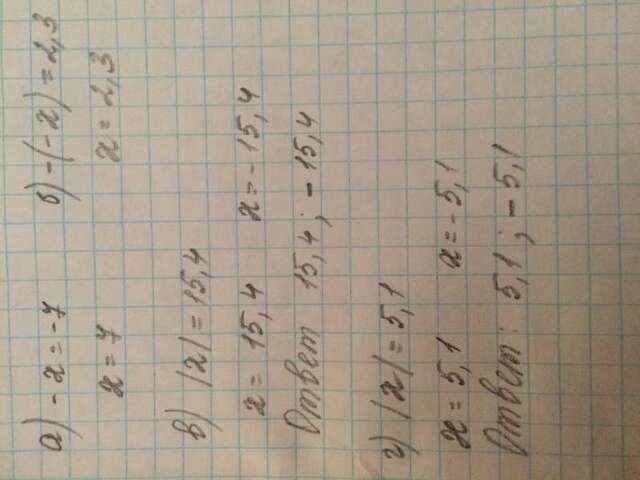 а) -x = -7 б) -(-x) = 2,3
x = 7 x = 2,3
в) |x| = 15,4
x = 15,4 x = -15,4
Ответ 15,4; -15,4
г) |x| = 5,1
x = 5,1 x = -5,1
Ответ: 5,1; -5,1